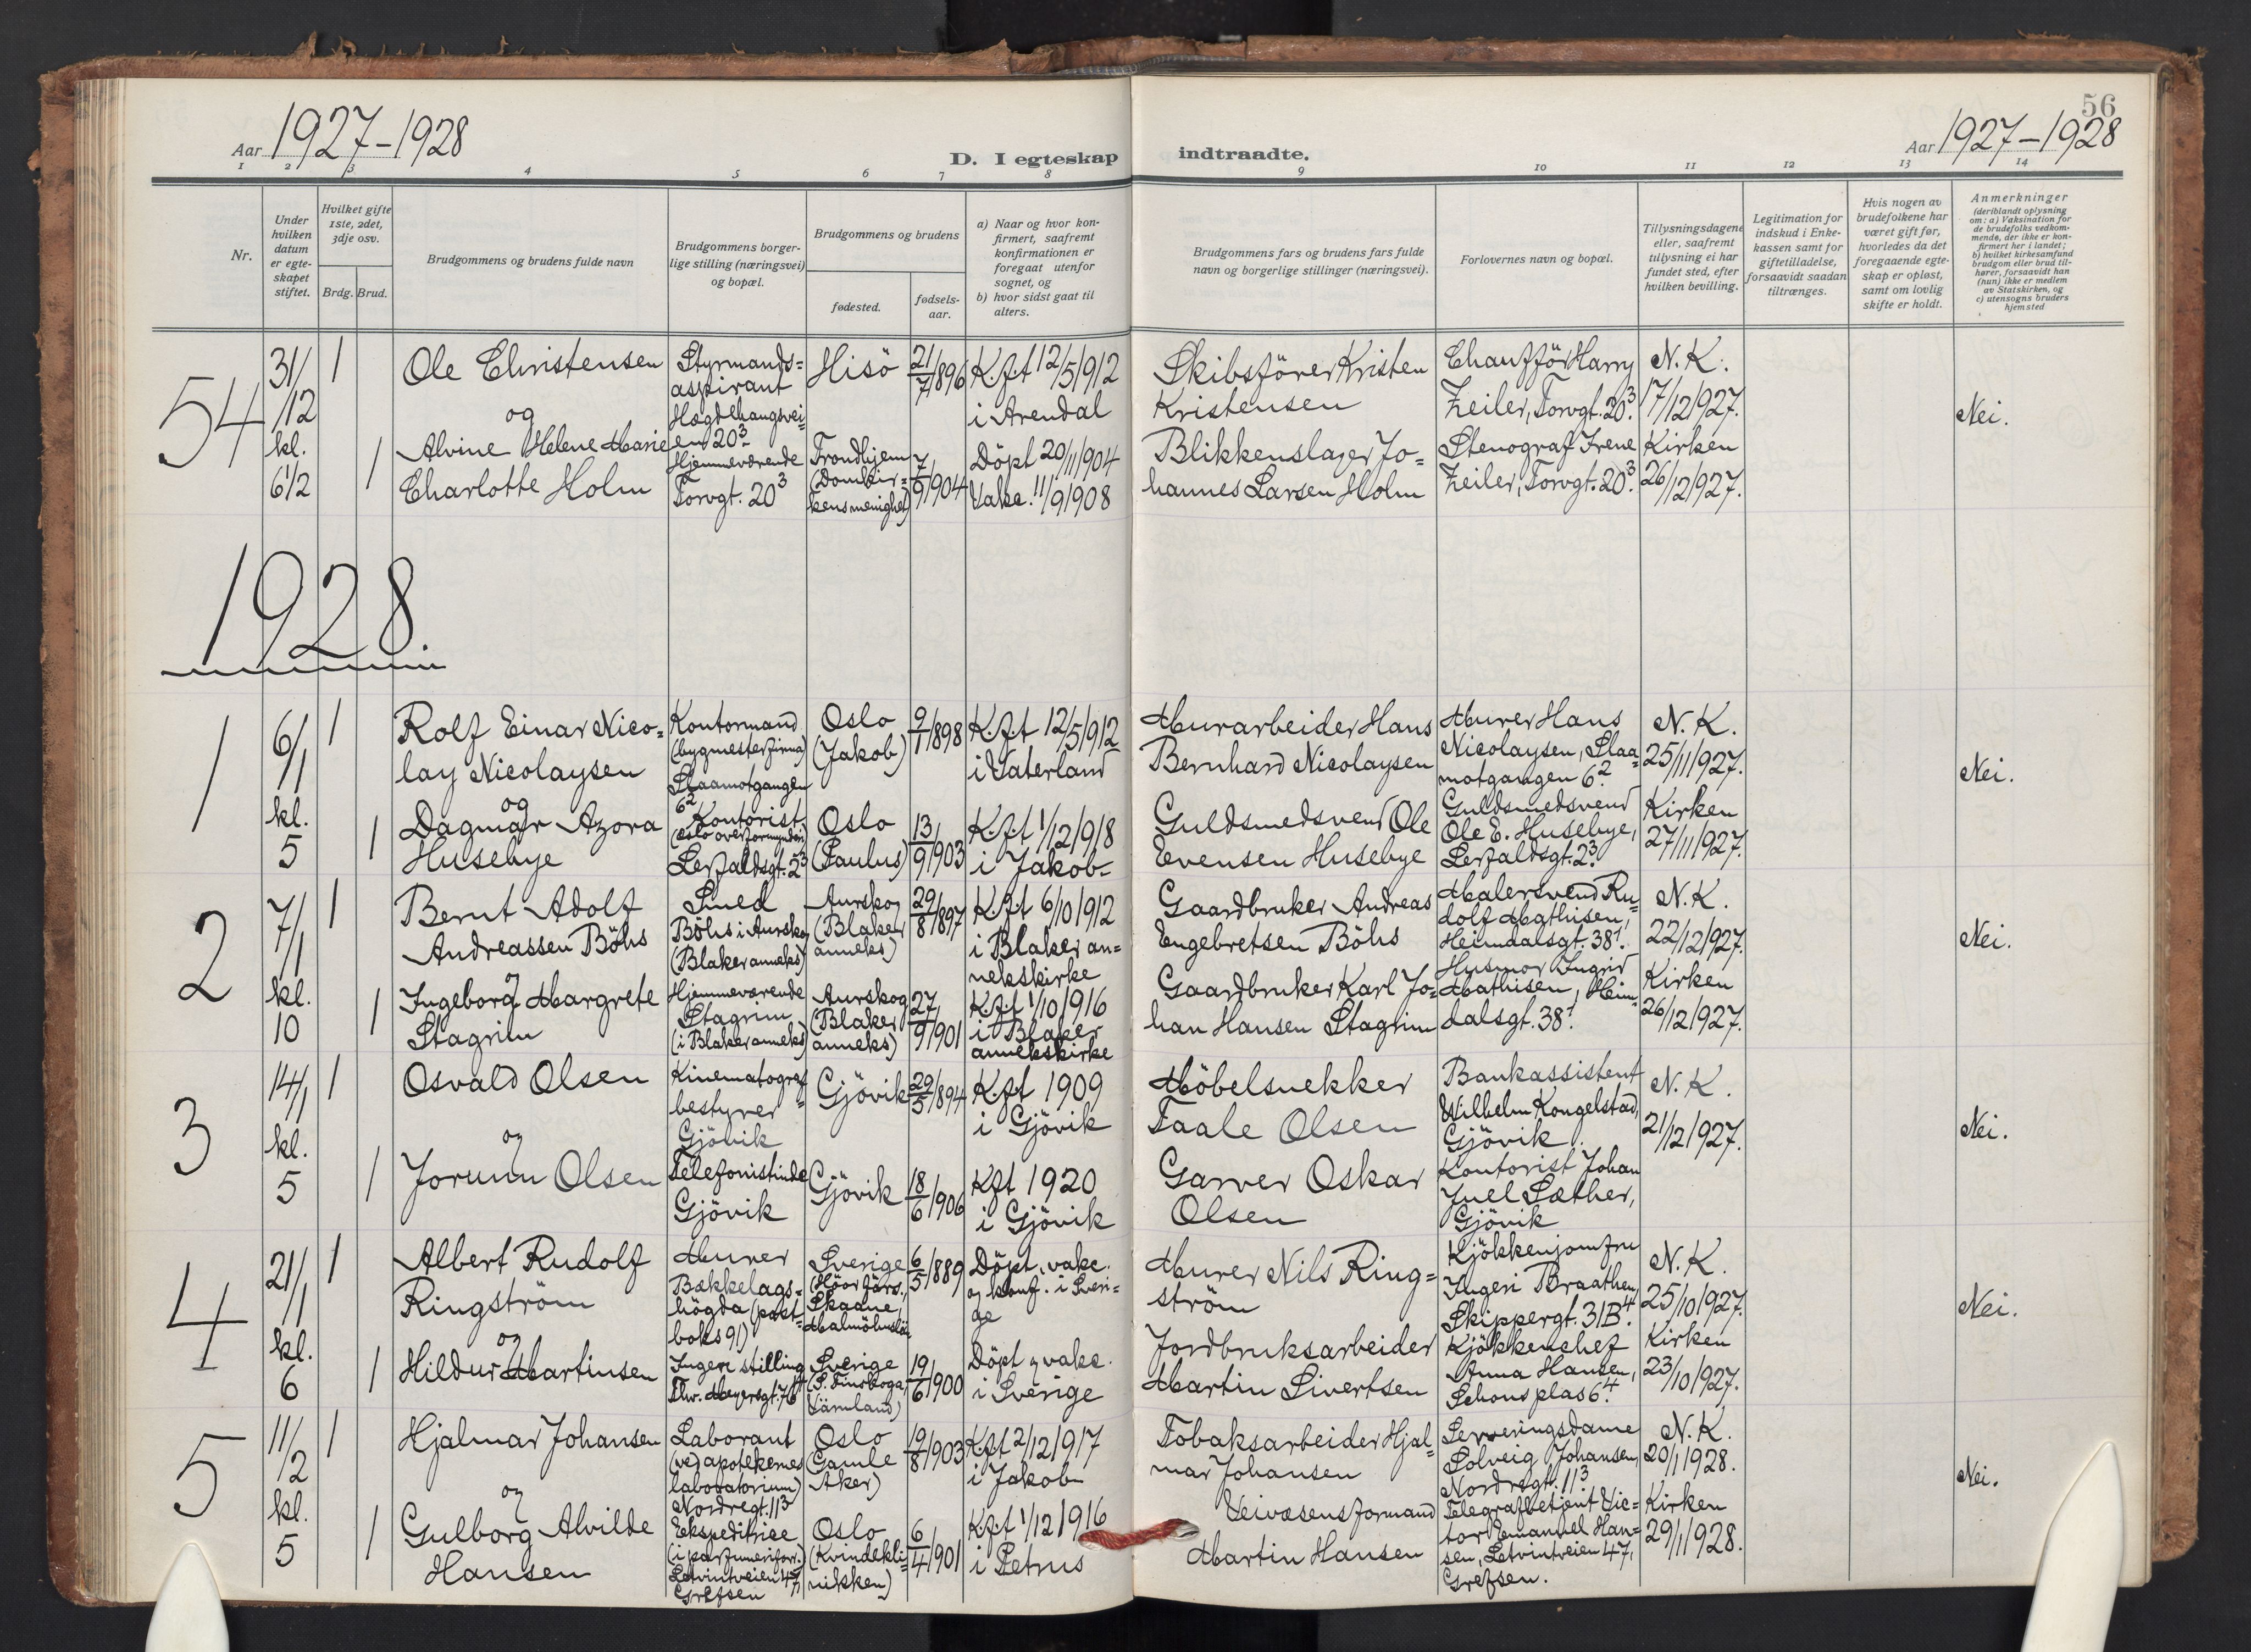 56
Aar 1927-1928
D. I egteskap indtraadte.
Aar 1927-1928
1 2 3 4 5 6 7 8 9 10 11 12 13 14
Nr.
Under hvilken datum er egteskapet stiftet.
Hvilket gifte 1ste, 2det, 3dje osv.
Brdg. Brud.
Brudgommens og brudens fulde navn
Brudgommens borger-
lige stilling (næringsvei)
og bopæl.
Brudgommens og brudens
fødested.
fødsels-
aar.
a) Naar og hvor kon-
firmert, saafremt
konfirmationen er
foregaat utenfor
sognet, og
b) hvor sidst gaat til
alters.
Brudgommens fars og brudens fars fulde
navn og borgerlige stillinger (næringsvei).
Forlovernes navn og bopæl.
Tillysningsdagene
eller, saafremt
tillysning ei har
fundet sted, efter
hvilken bevilling.
Legitimation for
indskud i Enke-
kassen samt for
giftetilladelse,
forsaavidt saadan
tiltrænges.
Hvis nogen av
brudefolkene har
været gift før,
hvorledes da det
foregaaende egte-
skap er opløst,
samt om lovlig
skifte er holdt.
Anmerkninger
(deriblandt oplysning
om: a) Vaksination for
de brudefolks vedkom-
mende, der ikke er kon-
firmert her i landet;
b) hvilket kirkesamfund
brudgom eller brud til-
hører, forsaavidt han
(hun) ikke er medlem
av Statskirken, og
c) utensogns bruders
hjemsted
54
31/12
kl.
6 1/2
1
Ole Christensen
Styrmands=
aspirant
Hægdehaugsvei=
en 20³
Hisö
21/7/896
K.f.t 12/5/912
i Arendal
Skibsförer Kristen
Kristensen
Chaufför Harry
Zeiler, Torvgt. 20³.
N.K.
17/12/927.
Nei.
og
1
Alvine Helene Marie
Charlotte Holm
Hjemmeværende
Torvgt. 20³
Trondhjem
(Domkir=
kens menighet)
7/9/904
Döpt 20/11/904
Vakc. 11/9/908
Blikkenslager Jo=
hannes Larsen Holm
Stenograf Irene
Zeiler, Torvgt. 20³.
Kirken
26/12/927.
1928.
1
6/1
kl.
5
1
Rolf Einar Nico=
lay Nicolaysen
Kontormand
(bygmesterfirma)
Slaamotgangen
6²
Oslo
(Jakob)
9/1/898
K.f.t 12/5/912
i Vaterland
Murarbeider Hans
Bernhard Nicolaysen
Murer Hans
Nicolaysen, Slaa=
motgangen 6²
N.K.
25/11/927.
Nei.
og
1
Dagmar Azora
Husebye
Kontorist
(Oslo overformynderi)
Lerfaldsgt. 2³
Oslo
(Paulus)
13/9/903
K.f.t 1/12/918
i Jakob
Guldsmedsvend Ole
Evensen Husebye
Guldsmedsvend
Ole E. Husebye,
Lerfaldsgt. 2³.
Kirken
27/11/927.
2
7/1
kl.
10
1
Bernt Adolf
Andreassen Böhs
Smed
Böhs i Aurskog
(Blaker anneks)
Aurskog
(Blaker
anneks)
29/8/897
K.f.t 6/10/912
i Blaker an=
nekskirke
Gaardbruker Andreas
Engebretsen Böhs
Malersvend Ru=
dolf Mathisen,
Heimdalsgt. 38¹.
N.K.
22/12/927.
Nei.
og
1
Ingeborg Margrete
Stagrim
Hjemmeværende
Stagrim
(i Blaker anneks)
Aurskog
(Blaker
anneks)
27/9/901
K.f.t 1/10/916
i Blaker
annekskirke
Gaardbruker Karl Jo=
han Hansen Stagrim
Husmor Ingrid
Mathisen, Heim=
dalsgt. 38¹.
Kirken
26/12/927.
3
14/1
kl.
5
1
Osvald Olsen
Kinematograf=
bestyrer
Gjövik
Gjövik
29/5/894
K.f.t 1909
i Gjövik
Möbelsnekker
Taale Olsen
Bankassistent
Wilhelm Kongelstad,
Gjövik.
N.K.
21/12/927.
Nei.
og
1
Jorunn Olsen
Telefonistinde
Gjövik
Gjövik
18/6/906
Kft 1920
i Gjövik
Garver Oskar
Olsen
Kontorist Johan
Juel Sæther,
Gjövik
4
21/1
kl.
6
1
Albert Rudolf
Ringström
Murer
Bækkelags=
högda (post=
boks 91)
Sverige
(Höör förs.,
Skaane,
Malmöhuslän
6/5/889
Döpt, vakc.
og konf. i Sveri=
ge
Murer Nils Ring=
ström
Kjökkenjomfru
Ingeri Braathen,
Skippergt. 31B⁴.
N.K.
25/10/927.
Nei.
og
1
Hildur Martinsen
Ingen stilling
Thv. Meyersgt. 76
Sverige
19/6/900
Döpt og vakc.
i Sverige
Jordbruksarbeider
Martin Sivertsen
Kjökkenchef
Anna Hansen,
Schous plas 6⁴.
Kirken
23/10/927.
5
11/2
kl.
5
1
Hjalmar Johansen
Laborant
(ved apotekernes
laboratorium)
Nordregt. 11³
Oslo
(Gamle
Aker)
19/8/903
Kft 2/12/917
i Jakob
Tobaksarbeider Hjal=
mar Johansen
Serveringsdame
Solveig Johansen,
Nordregt. 11³
N.K.
20/1/1928.
Nei.
og
1
Gulborg Alvilde
Hansen
Ekspeditrice
(i parfumeriforr.)
Letvintveien 47,
Grefsen
Oslo
(Kvindekli=
nikken)
6/4/901
K.f.t 1/12/916
i Petrus
Veivæsensformand
Martin Hansen
Telegrafbetjent Vic=
tor Emanuel Han=
sen, Letvintveien 47,
Grefsen.
Kirken
29/1/1928.